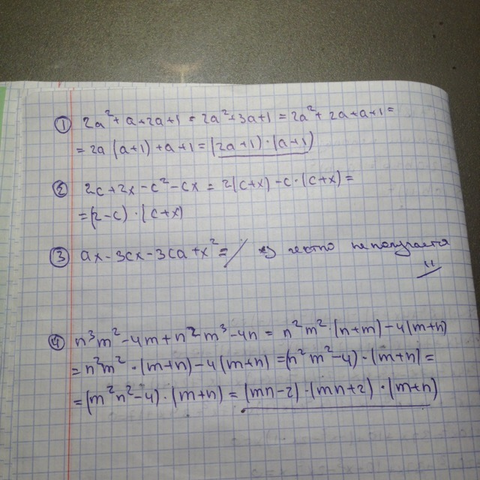 ① 2a²+a+2a+1 = 2a²+3a+1 = 2a²+2a+a+1 =
= 2a (a+1)+a+1 = (2a+1)·(a+1)
② 2c+2x-c²-cx = 2(c+x)-c·(c+x) =
= (2-c)·(c+x)
③ ax-3cx-3ca+x² = / не получается
④ n³m²-4m+n²m³-4n = n²m²·(n+m)-4(m+n)
= n²m²·(m+n)-4(m+n) = (n²m²-4)·(m+n) =
= (m²n²-4)·(m+n) = (mn-2)·(mn+2)·(m+n)